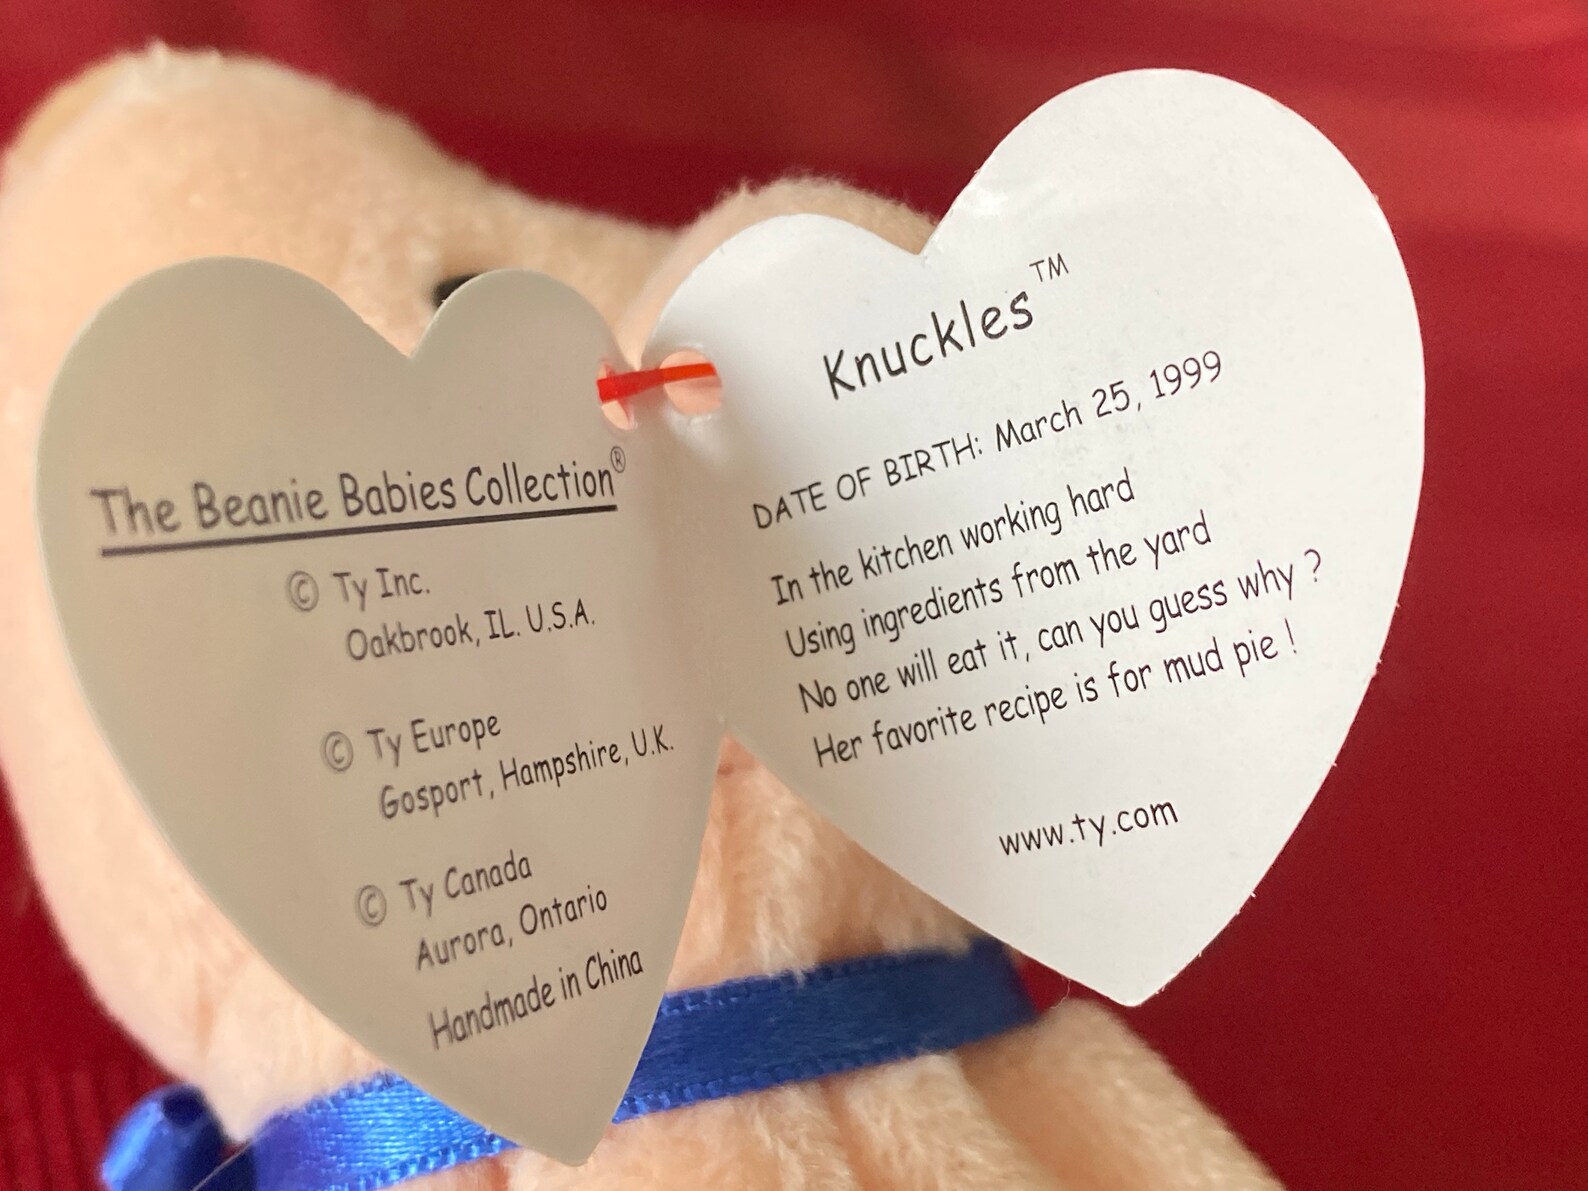 The Beanie Babies Collection®
© Ty Inc.
Oakbrook, IL. U.S.A.
© Ty Europe
Gosport, Hampshire, U.K.
© Ty Canada
Aurora, Ontario
Handmade in China
Knuckles™
DATE OF BIRTH: March 25, 1999
In the kitchen working hard
Using ingredients from the yard
No one will eat it, can you guess why ?
Her favorite recipe is for mud pie !
www.ty.com